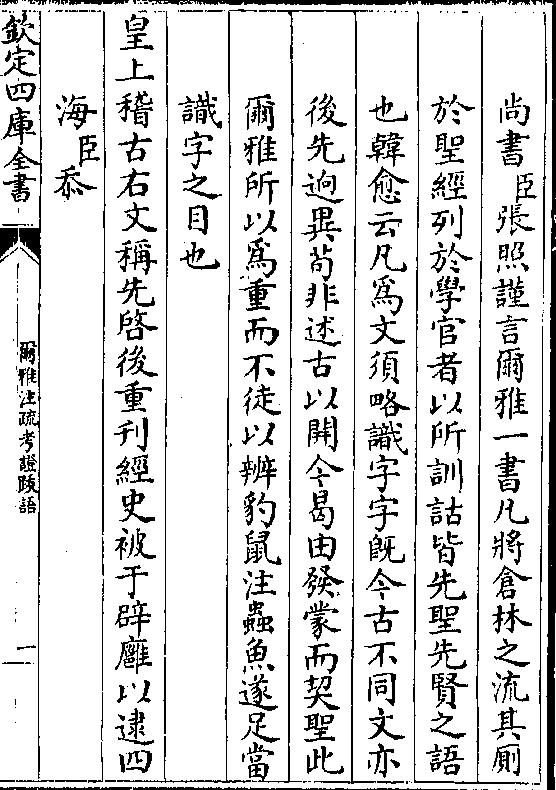 尚書臣張照謹言爾雅一書凡將倉林之流其厠
於聖經列於學官者以所訓詁皆先聖先賢之語
也韓愈云凡爲文須略識字字旣今古不同文亦
後先逈異茍非述古以開今曷由發蒙而契聖此
爾雅所以爲重而不徒以辨豹鼠注蟲魚遂足當
識字之目也
皇上稽古右文稱先啓後重刋經史被于辟廱以逮四
海臣忝
欽定四庫全書
爾雅注疏考證跋語
一